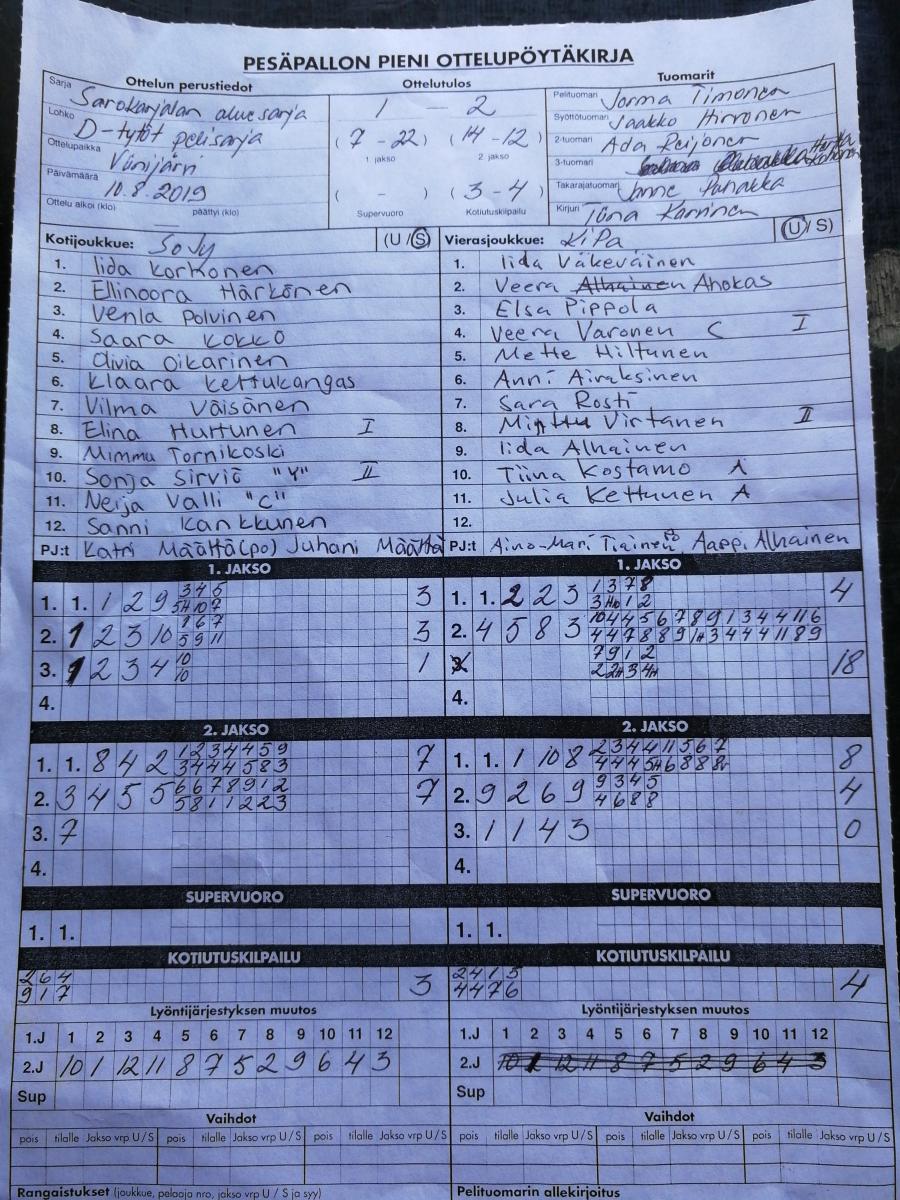 PESÄPALLON PIENI OTTELUPÖYTÄKIRJA
Ottelun perustiedot Ottelutulos Tuomarit
Sarja Savokarjalan aluesarja
Lohko D-tytöt pelisarja
Ottelupaikka
Päivämäärä 10.8.2019
Ottelu alkoi (klo) päättyi (klo)
1 — 2
(7 - 22) (14 - 12)
1. jakso 2. jakso
( - ) (3 - 4)
Supervuoro Kotiutuskilpailu
Pelituomari Jorma Timonen
Syöttötuomari Jaakko Hirvonen
2-tuomari Ada Reijonen
3-tuomari
Takarajatuomari
Kirjuri Tiina Karvinen
Kotijoukkue: SoJy (U / S)
1. Iida Korhonen
2. Ellinoora Härkönen
3. Venla Polvinen
4. Saara Kokko
5. Olivia Oikarinen
6. Klaara Kettukangas
7. Vilma Väisänen
8. Elina Hurtunen I
9. Mimmu Tornikoski
10. Sonja Sirviö "Y" II
11. Neija Valli "C"
12. Sanni Kankkunen
PJ:t Katri Määttä (po) Juhani Määttä
Vierasjoukkue: KiPa (U / S)
1. Iida Väkeväinen
2. Veera Alhainen Ahokas
3. Elsa Pippola
4. Veera Varonen C I
5. Mette Hiltunen
6. Anni Airaksinen
7. Sara Rosti
8. Minttu Virtanen II
9. Iida Alhainen
10. Tiina Kostamo A
11. Julia Kettunen A
12.
PJ:t Aino-Mari Tiainen Aappi Alhainen
1. JAKSO
1. 1. 1 2 9 3 4 5 3
5H 10 7
2. 1 2 3 10 1 6 7 3
5 9 11
3. 1 2 3 4 10 1
10
4.
1. JAKSO
1. 1. 2 2 3 1 3 7 8 4
1 2
2. 4 5 8 3 10 4 4 5 6 7 8 9 1 3 4 4 11 6
4 4 7 8 8 9 1H 3 4 4 4 11 8 9
3. 7 9 1 2 18
2 2H 3 4H
4.
2. JAKSO
1. 1. 8 4 2 1 2 3 4 4 5 9 7
3 4 4 4 5 8 3
2. 3 4 5 5 6 6 7 8 9 1 2 7
5 8 1 1 2 2 3
3. 7
4.
2. JAKSO
1. 1. 1 10 8 2 3 4 4 11 5 6 7 8
4 4 4 5H 6 8 8
2. 9 2 6 9 9 3 4 5 4
4 6 8 8
3. 1 1 4 3 0
4.
SUPERVUORO
1. 1.
SUPERVUORO
1. 1.
KOTIUTUSKILPAILU
2 6 4 3
9 1 7
KOTIUTUSKILPAILU
2 4 1 5 4
4 4 7 6
Lyöntijärjestyksen muutos
1.J 1 2 3 4 5 6 7 8 9 10 11 12
2.J 10 1 12 11 8 7 5 2 9 6 4 3
Sup
Lyöntijärjestyksen muutos
1.J 1 2 3 4 5 6 7 8 9 10 11 12
2.J 10 1 12 11 8 7 5 2 9 6 4 3
Sup
Vaihdot
pois tilalle Jakso vrp U / S pois tilalle Jakso vrp U / S pois tilalle Jakso vrp U / S
Vaihdot
pois tilalle Jakso vrp U / S pois tilalle Jakso vrp U / S pois tilalle Jakso vrp U / S
Rangaistukset (joukkue, pelaaja nro, jakso vrp U / S ja syy)
Pelituomarin allekirjoitus